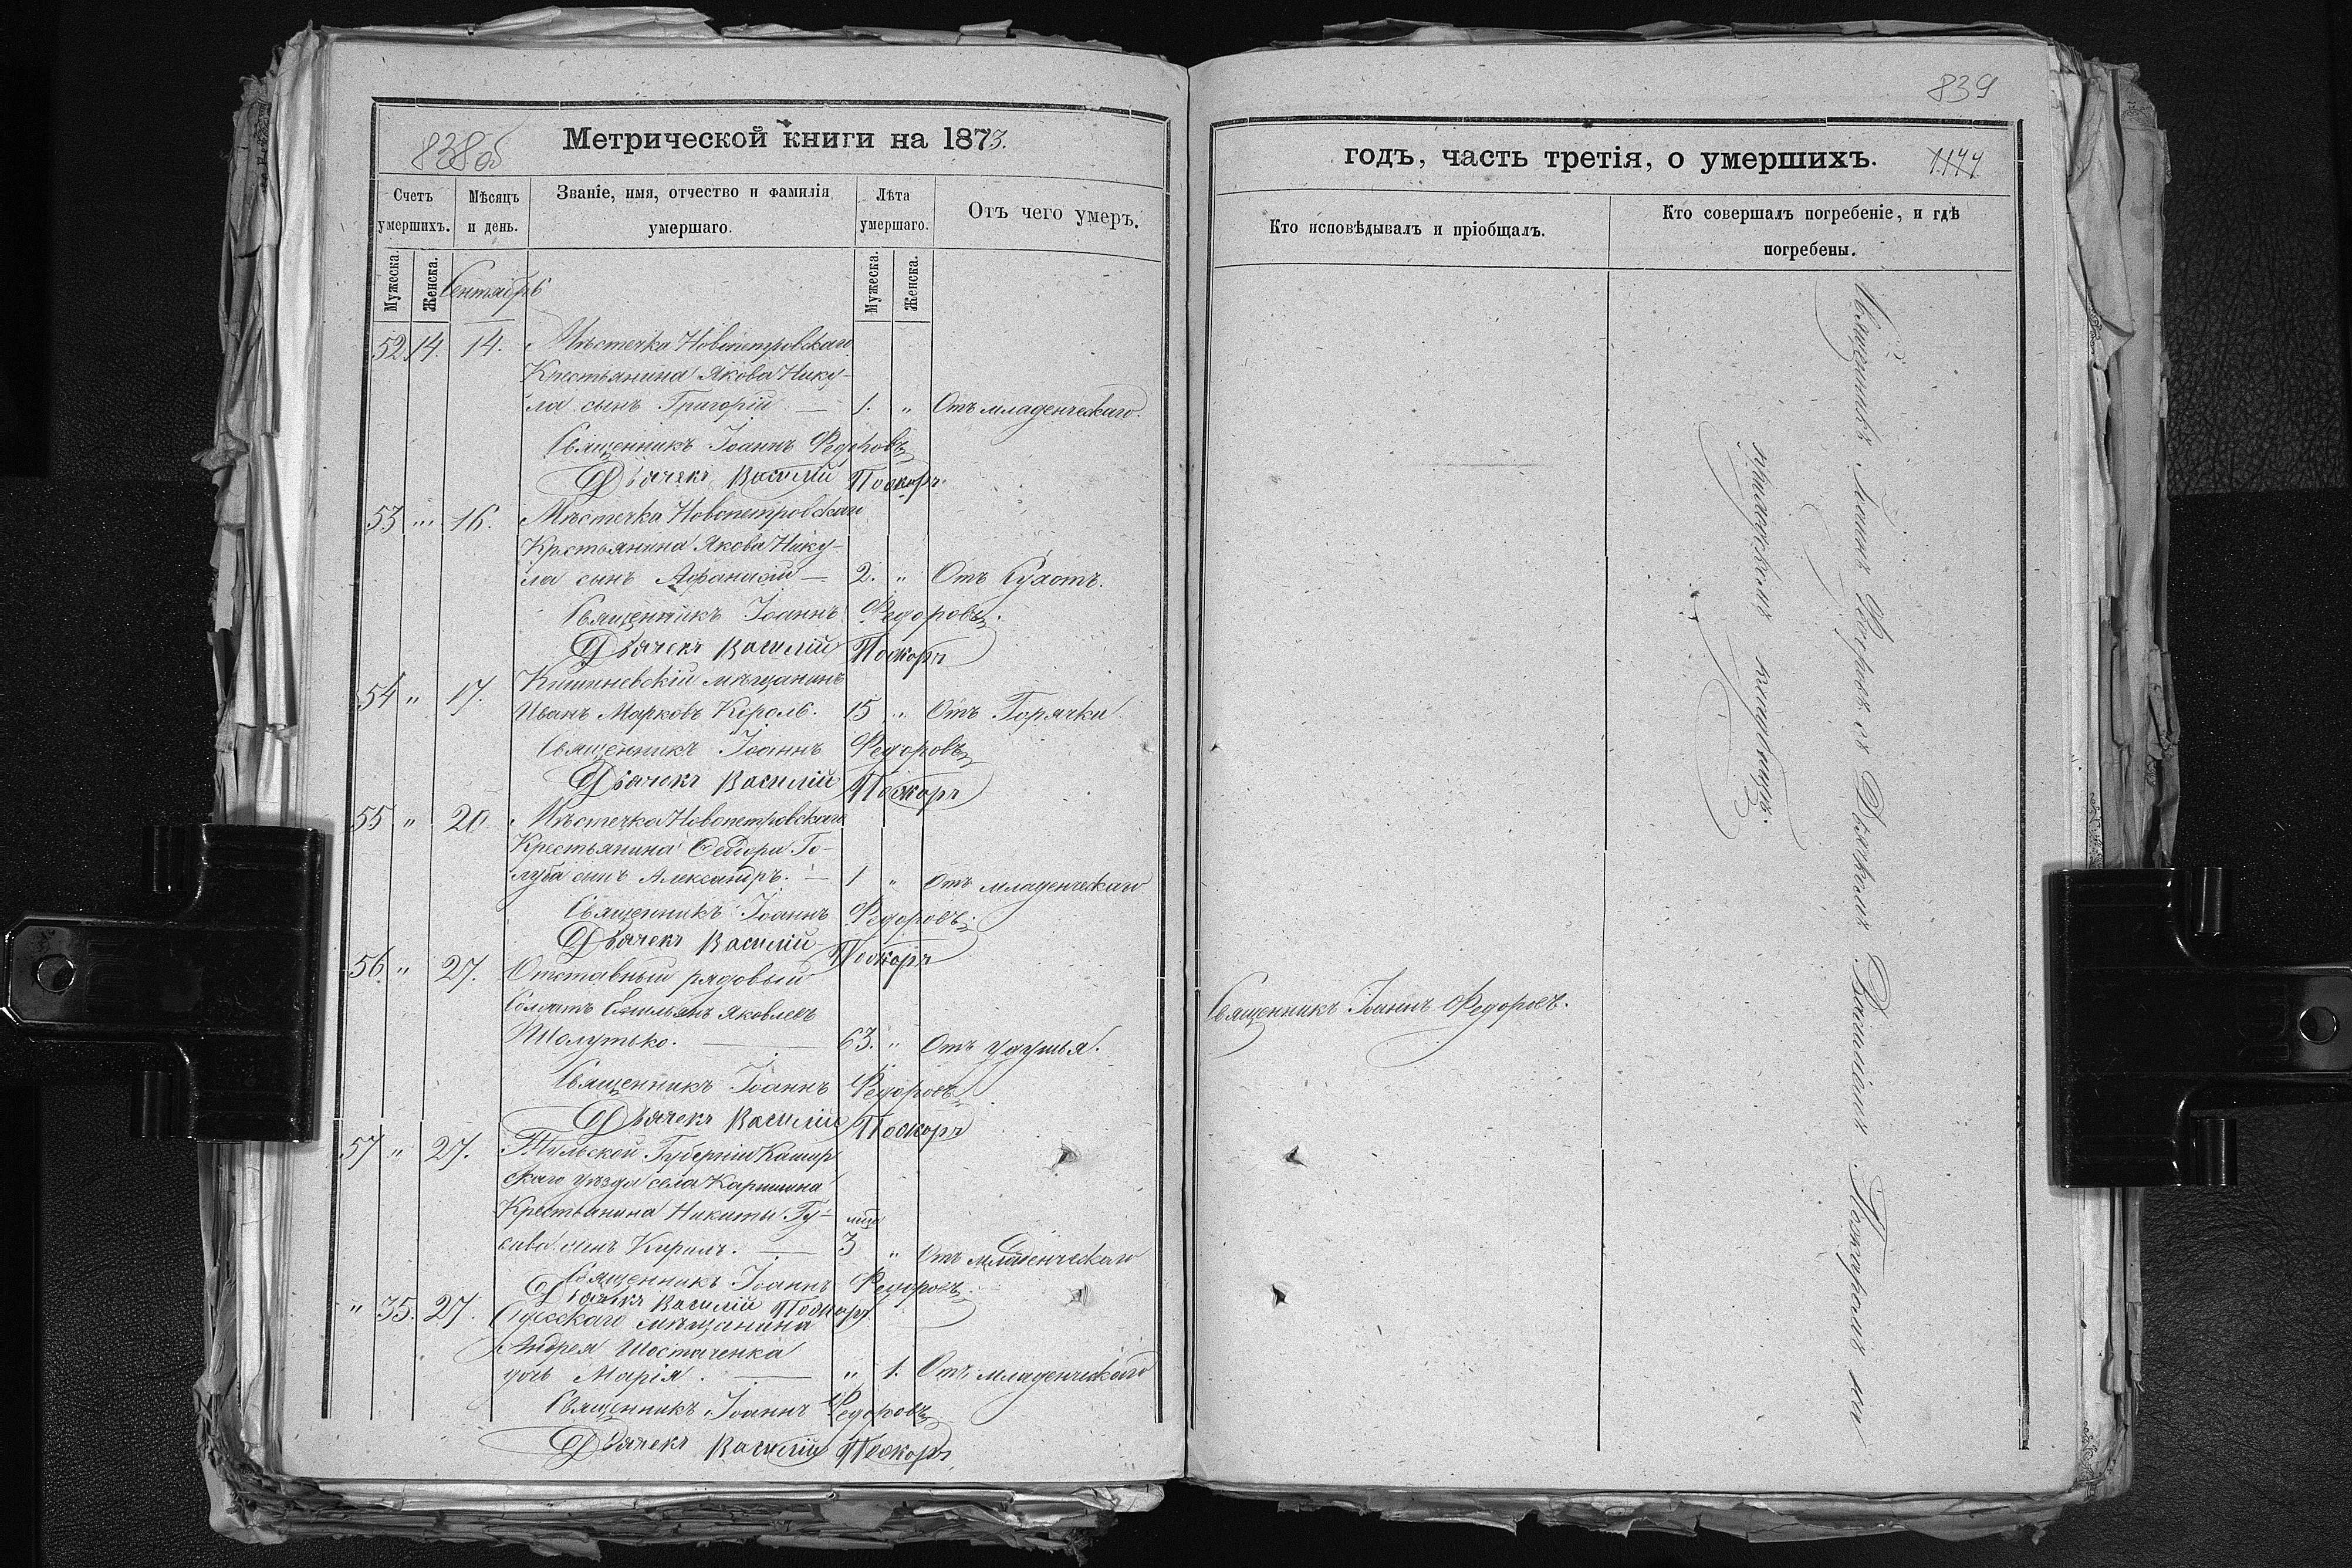 838об
Метрической книги на 1873.
Счетъ умершихъ.
Мѣсяцъ и день.
Званіе, имя, отчество и фамилія умершаго.
Лѣта умершаго.
Отъ чего умеръ.
Мужеска.
Женска.
Мужеска.
Женска.
Сентябрь
52. 14. 14. Мѣстечка Новопетровскаго
Крестьянина Якова Нику-
ла сынъ Григорій — 1. " Отъ младенческаго.
Священникъ Іоаннъ Федоровъ
Дьячекъ Василій Поскоръ
53 " 16. Мѣстечка Новопетровскаго
Крестьянина Якова Нику-
ла сынъ Афанасій — 2. " Отъ Сухотъ.
Священникъ Іоаннъ Федоровъ.
Дьячекъ Василій Поскоръ
54 " 17. Кишиневскій мѣщанинъ
Иванъ Марковъ Король. 15 " Отъ Горячки
Священникъ Іоаннъ Федоровъ
Дьячекъ Василій Поскоръ
55 " 20. Мѣстечка Новопетровскаго
Крестьянина Федора Го-
луба сынъ Александръ. — 1 " Отъ младенческаго
Священникъ Іоаннъ Федоровъ.
Дьячекъ Василій Поскоръ
56. " 27. Отставный рядовый
Солдатъ Емильянъ Яковлевъ
Шолутько. — 63. " Отъ удушья.
Священникъ Іоаннъ Федоровъ
Дьячекъ Василій Поскоръ
57 " 27. Тульской Губерніи Кашир
скаго уѣзда села
Крестьянина Никиты Гу-
сева сынъ Кирилъ. — 3 " Отъ младенческаго
Священникъ Іоаннъ Федоровъ.
Дьячекъ Василій Поскоръ
" 35. 27. Одесскаго мѣщанина
Андрея Шостаченка
дочь Марія. — " 1. Отъ младенческаго
Священникъ Іоаннъ Федоровъ
Дьячекъ Василій Поскоръ
839
годъ, часть третія, о умершихъ. 1177.
Кто исповѣдывалъ и пріобщалъ.
Кто совершалъ погребеніе, и гдѣ погребены.
Священникъ Іоаннъ Федоровъ.
Священникъ Іоаннъ Федоровъ съ Дьячкомъ Василіемъ на
приходскомъ кладбищѣ.